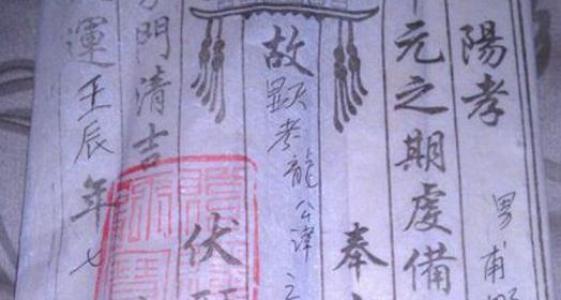 陽孝男甫
元之期虔備
奉
故顕考龍公諱
伏
門清吉
運壬辰年七